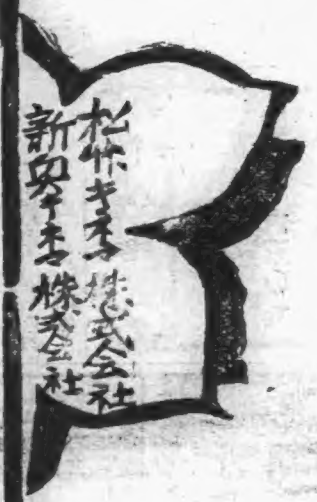 松竹キネマ株式会社
新興キネマ株式会社